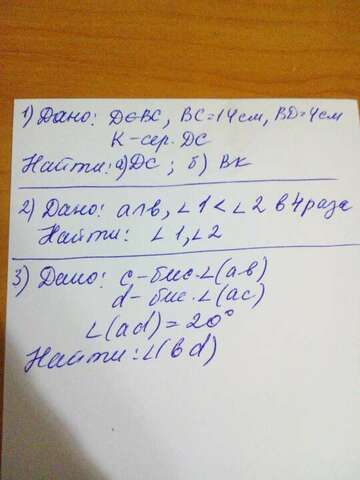 1) Дано: D∈BC, BC=14см, BD=4см
K-сер. DC
Найти: а) DC; б) BK
2) Дано: a∩b, ∠1<∠2 в 4 раза
Найти: ∠1,∠2
3) Дано: c-бис.∠(ab)
d-бис.∠(ac)
∠(ad)=20°
Найти: ∠(bd)